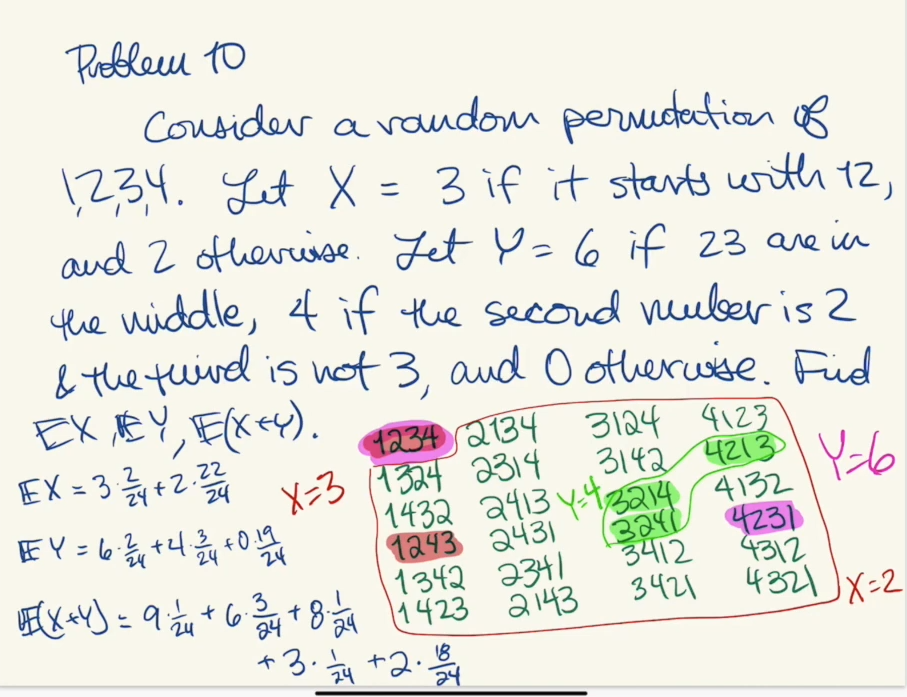 Problem 10
Consider a random permutation of
1,2,3,4. Let X = 3 if it starts with 12,
and 2 otherwise. Let Y = 6 if 23 are in
the middle, 4 if the second number is 2
& the third is not 3, and 0 otherwise. Find
EX, EY, E(X+Y).
EX = 3 · 2/24 + 2 · 22/24
EY = 6 · 2/24 + 4 · 3/24 + 0 · 19/24
E(X+Y) = 9 · 1/24 + 6 · 3/24 + 8 · 1/24
+ 3 · 1/24 + 2 · 18/24
X=3
1234 2134 3124 4123
1324 2314 3142 4213
1432 2413 Y=4 3214 4132
1243 2431 3241 4231
1342 2341 3412 4312
1423 2143 3421 4321
Y=6
X=2